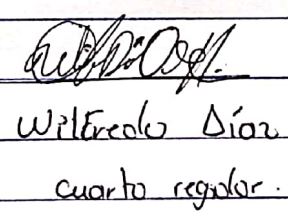 Wilfredo Díaz
cuarto regidor.